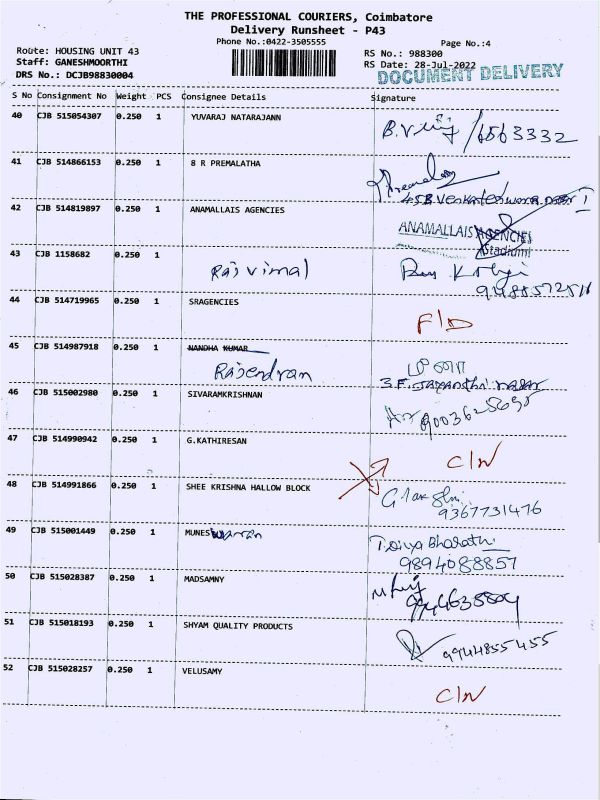 THE PROFESSIONAL COURIERS, Coimbatore
Delivery Runsheet - P43
Phone No.:0422-3505555
Page No.:4
Route: HOUSING UNIT 43
RS No.: 988300
Staff: GANESHMOORTHI
RS Date: 28-Jul-2022
DRS No.: DCJB98830004
DOCUMENT DELIVERY
S No Consignment No Weight PCS Consignee Details Signature
40 CJB 515054307 0.250 1 YUVARAJ NATARAJANN
41 CJB 514866153 0.250 1 8 R PREMALATHA
42 CJB 514819897 0.250 1 ANAMALLAIS AGENCIES
ANAMALLAIS AGENCIES
Stadium
43 CJB 1158682 0.250 1
Raj vimal
44 CJB 514719965 0.250 1 SRAGENCIES
F/D
45 CJB 514987918 0.250 1 NANDHA KUMAR
Rajendran
46 CJB 515002980 0.250 1 SIVARAMKRISHNAN
47 CJB 514990942 0.250 1 G.KATHIRESAN
C/N
48 CJB 514991866 0.250 1 SHEE KRISHNA HALLOW BLOCK
9367731476
49 CJB 515001449 0.250 1 MUNESwaran
T.Divya Bharathi
9894088857
50 CJB 515028387 0.250 1 MADSAMNY
51 CJB 515018193 0.250 1 SHYAM QUALITY PRODUCTS
9944855455
52 CJB 515028257 0.250 1 VELUSAMY
C/N